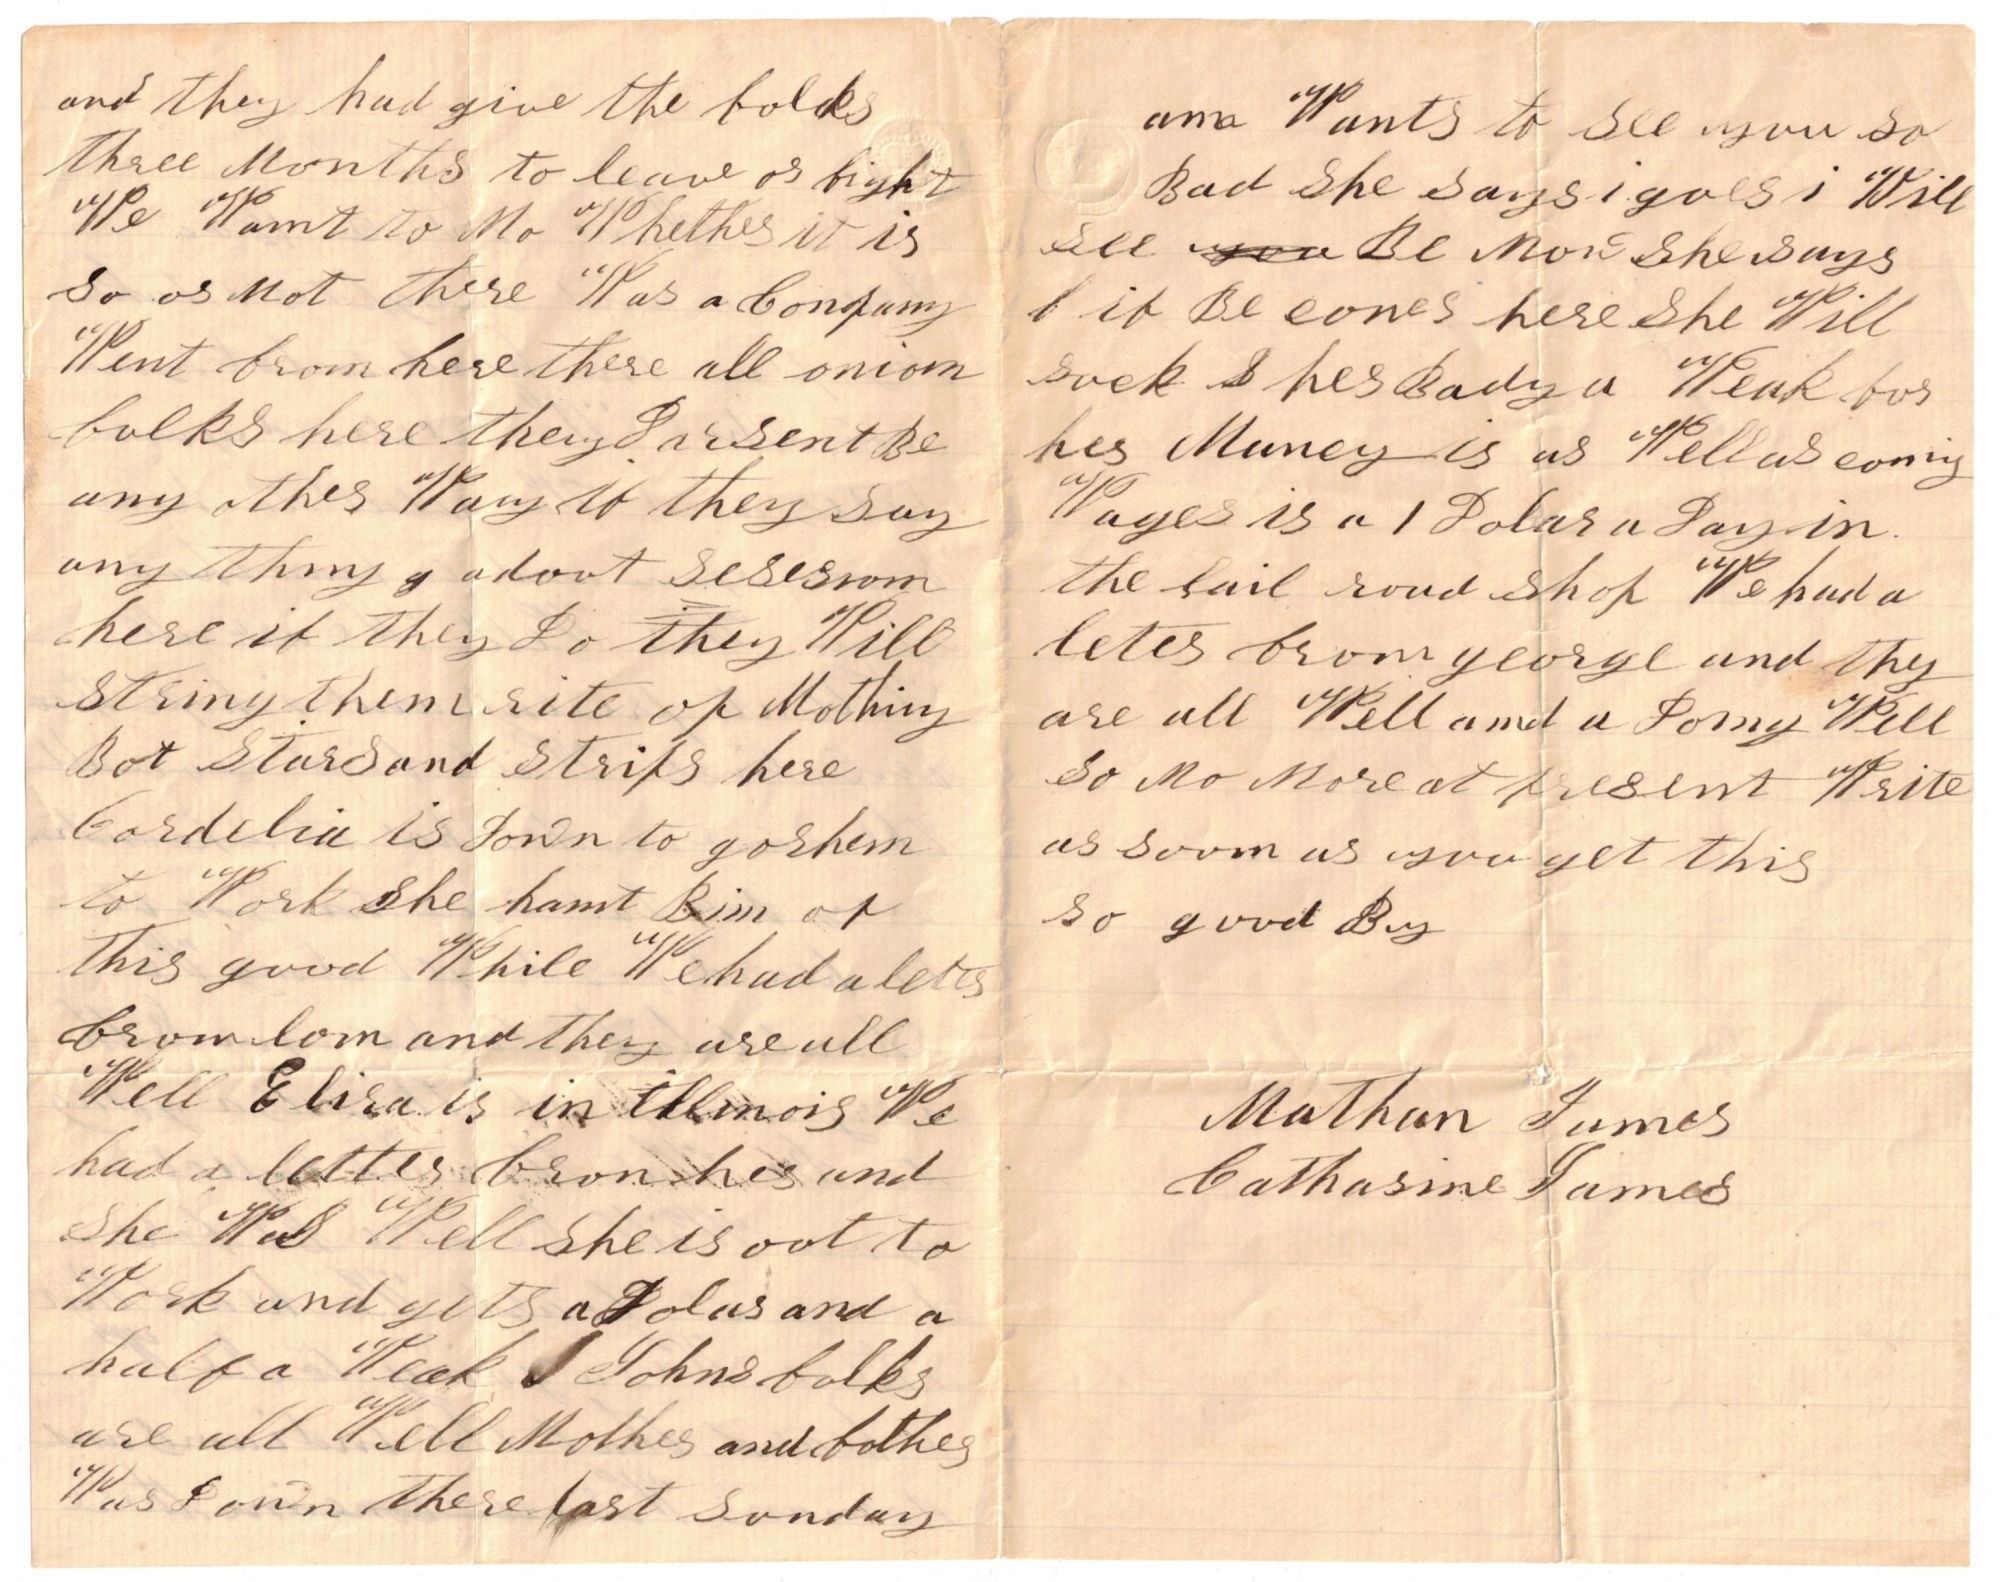 and they had give the folks
three Months to leave or fight
We Want to No Whether it is
so or Not there Was a Company
Went from here there all onion
folks here they Darsent Be
any other Way if they say
any thing adoot sesesion
here if they Do they Will
string them rite op Nothing
Bot stars and strips here
Cordelia is Down to gorhem
to Work she hant Bin op
this good While We had a leter
from lom and they are all
Well Eliza is in illinois We
had a letter from her and
she Was Well she is oot to
Work and gets a Dolar and a
half a Weak Johns folks
are all Well Mother and father
Was Down there last sonday
ana Wants to see you so
Bad she says i goes i Will
see you Be More she says
if Be comes here she Will
sock her Bady a Weak for
her Muney is as Well as coming
Wages is a 1 Dolar a Day in
the rail road shop We had a
leter from george and they
are all Well and a Doing Well
so No More at present Write
as soon as you get this
so good By
Nathan James
Catharine James